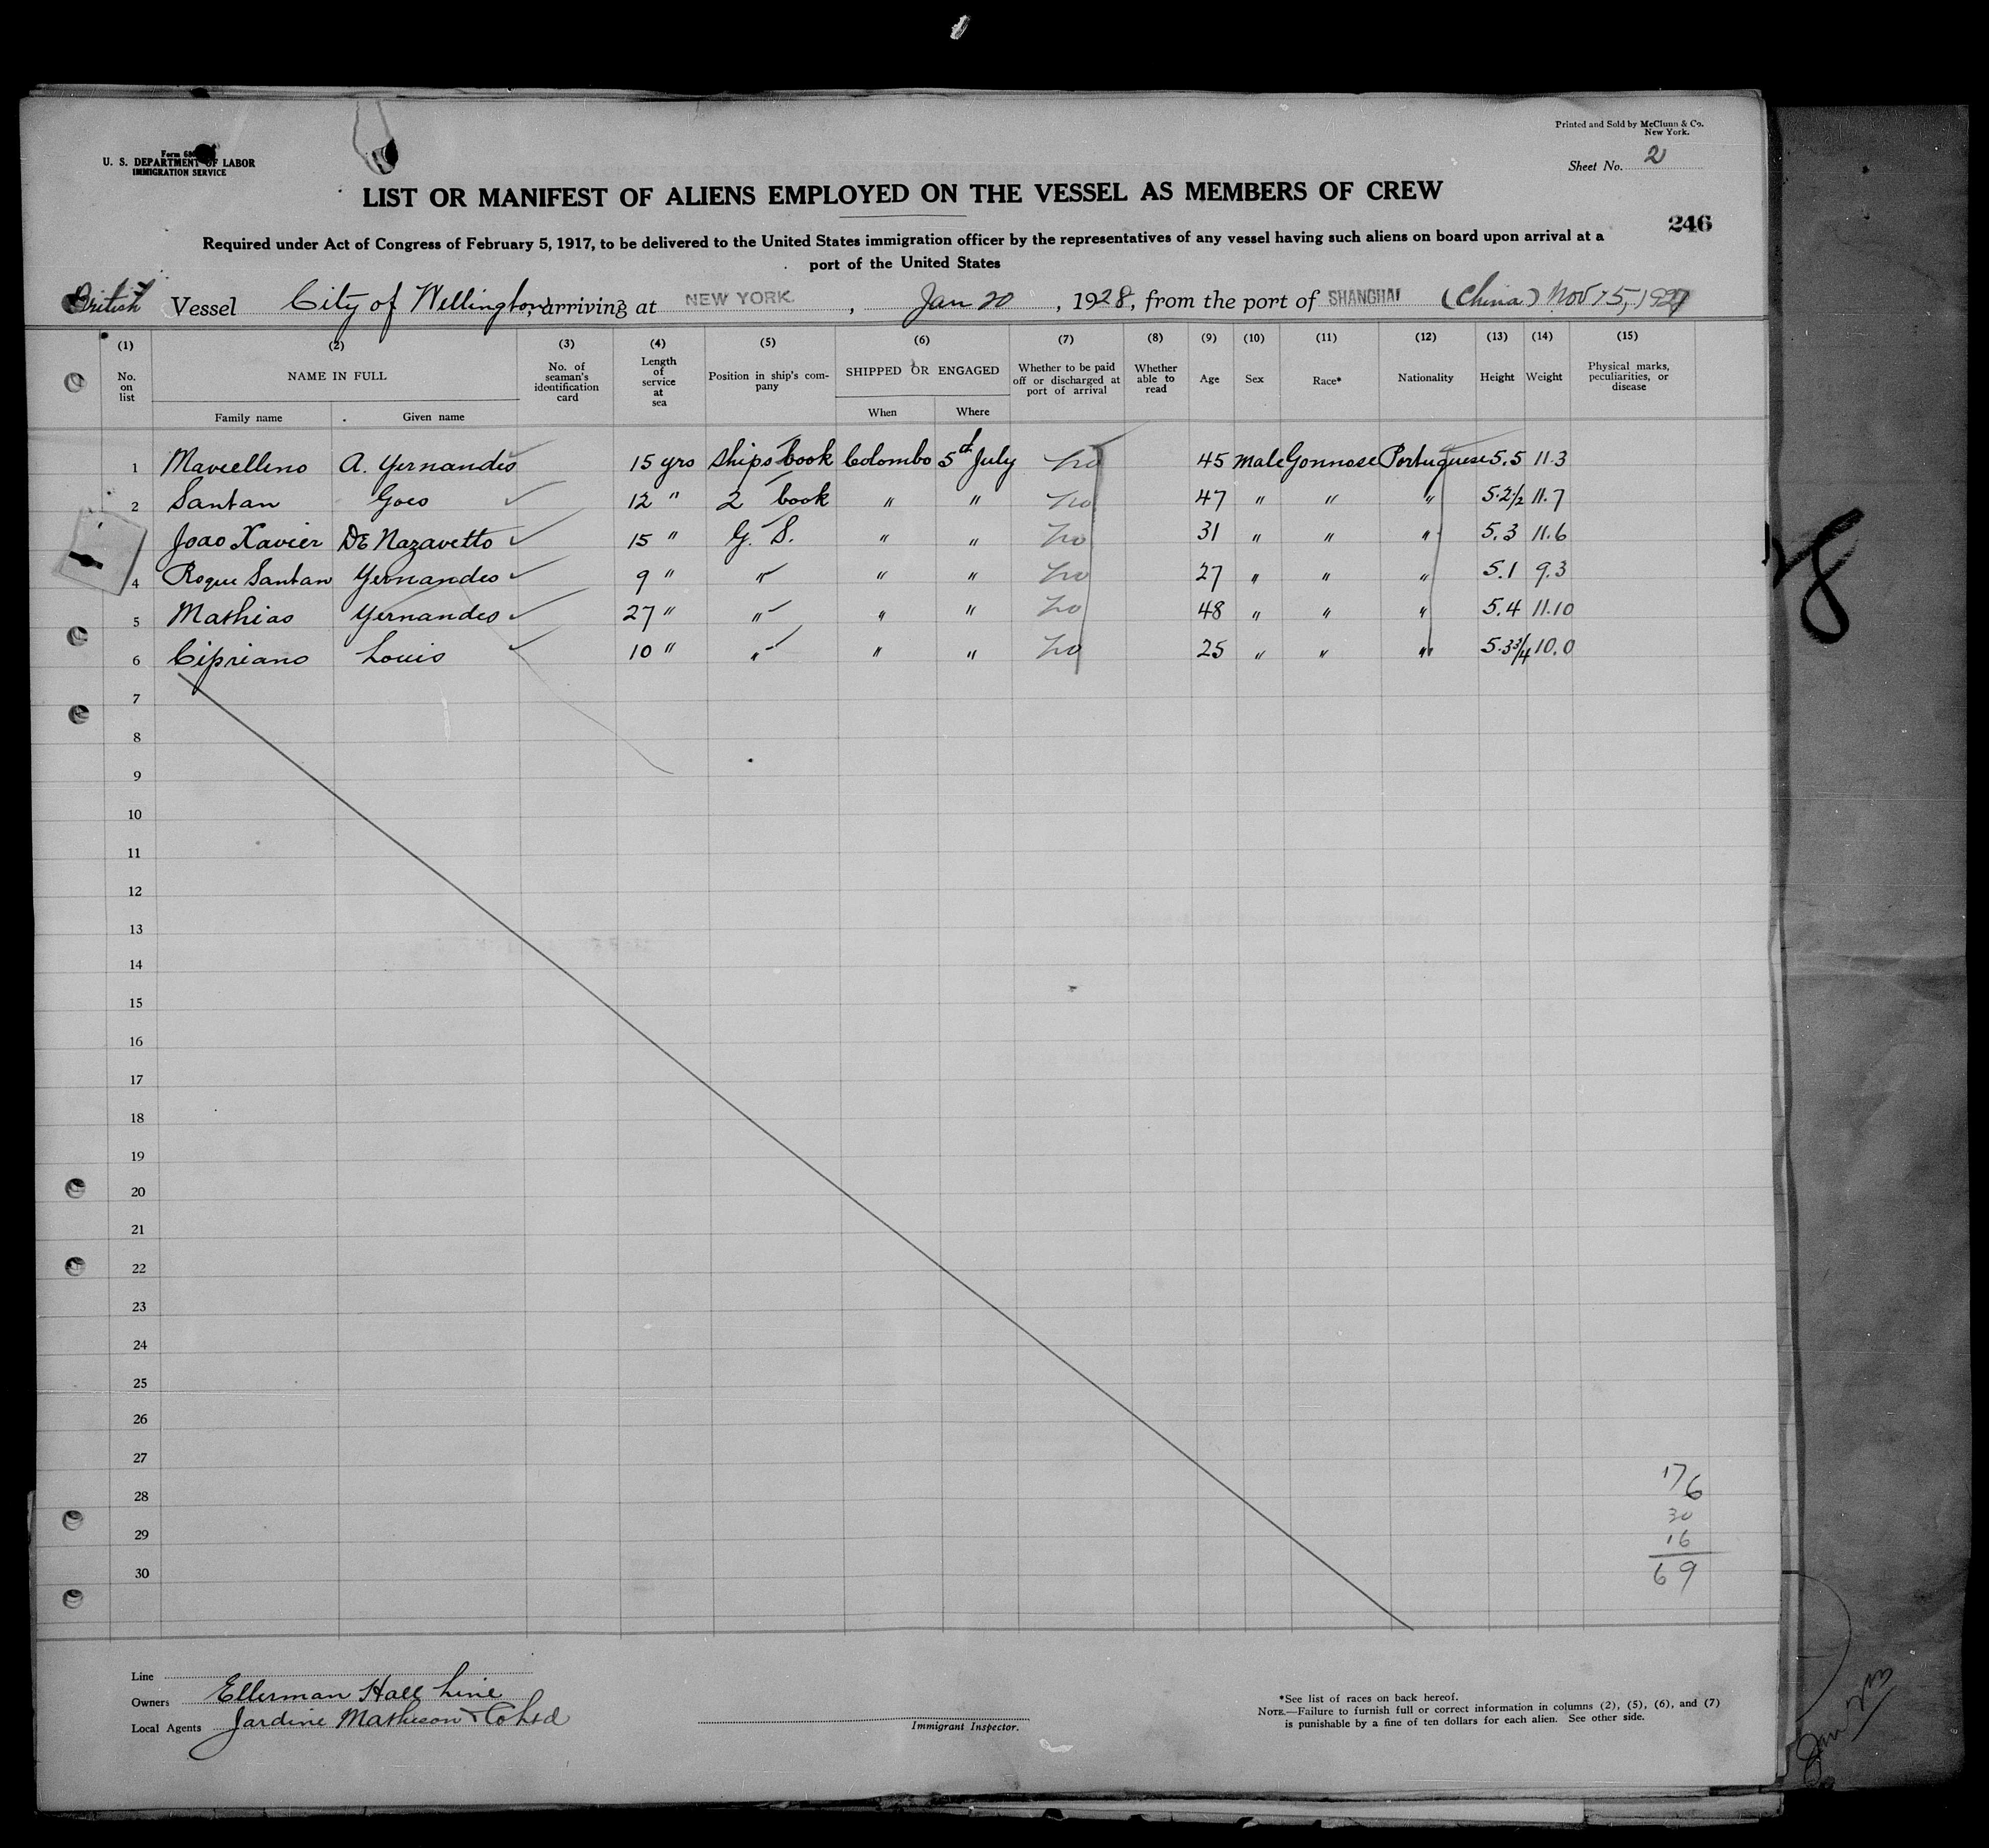 Printed and Sold by McClunn & Co.
New York.
Sheet No. 2
U. S. DEPARTMENT OF LABOR
IMMIGRATION SERVICE
LIST OR MANIFEST OF ALIENS EMPLOYED ON THE VESSEL AS MEMBERS OF CREW
246
Required under Act of Congress of February 5, 1917, to be delivered to the United States immigration officer by the representatives of any vessel having such aliens on board upon arrival at a
port of the United States
British Vessel City of Wellington, arriving at NEW YORK, Jan 20, 1928, from the port of SHANGHAI (China) Nov 15, 1927
(1) (2) (3) (4) (5) (6) (7) (8) (9) (10) (11) (12) (13) (14) (15)
No. on list NAME IN FULL No. of seaman's identification card Length of service at sea Position in ship's company SHIPPED OR ENGAGED Whether to be paid off or discharged at port of arrival Whether able to read Age Sex Race* Nationality Height Weight Physical marks, peculiarities, or disease
Family name Given name When Where
1 Marcellino A. Yernandes 15 yrs Ships book Colombo 5th July No 45 Male Gonnose Portuguese 5.5 11.3
2 Santan Goes 12 " 2 book " " No 47 " " " 5.2 1/2 11.7
Joao Xavier DE Nazavetto 15 " G. S. " " No 31 " " " 5.3 11.6
4 Roque Santan Yernandes 9 " " " " No 27 " " " 5.1 9.3
5 Mathias Yernandes 27 " " " " No 48 " " " 5.4 11.10
6 Cipriano Louis 10 " " " " No 25 " " " 5.3 3/4 10.0
7
8
9
10
11
12
13
14
15
16
17
18
19
20
21
22
23
24
25
26
27
28
29
30
176
30
16
69
Line
Owners Ellerman Hall Line
Local Agents Jardine Matheson & Co Ltd
Immigrant Inspector.
*See list of races on back hereof.
NOTE.—Failure to furnish full or correct information in columns (2), (5), (6), and (7)
is punishable by a fine of ten dollars for each alien. See other side.